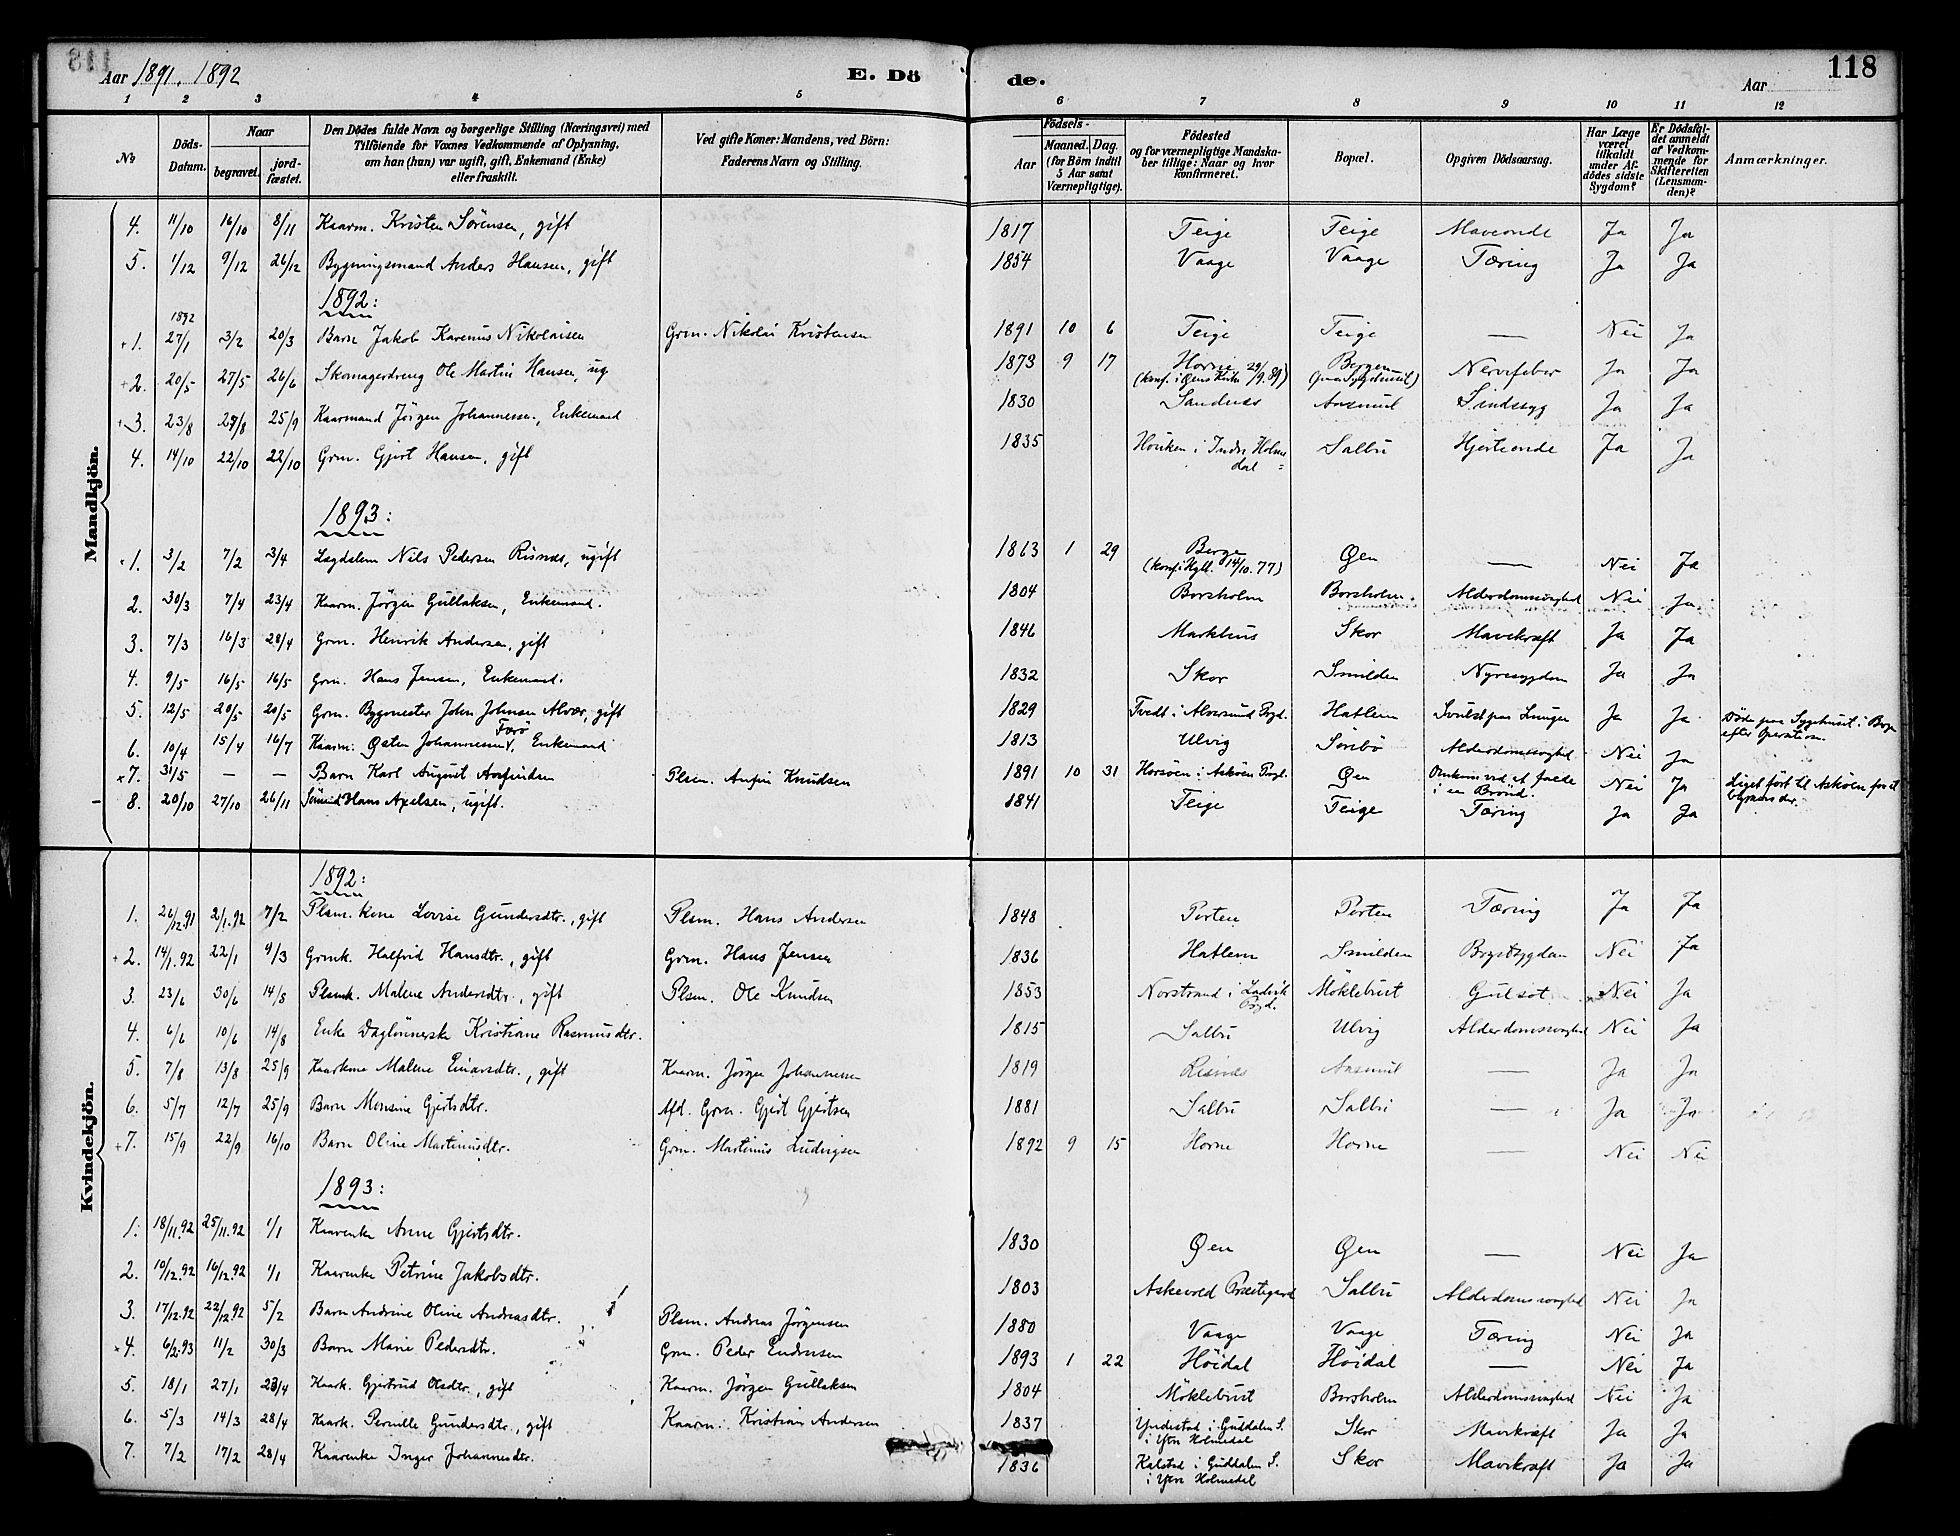 118
Aar 1891. 1892
E. Dö de.
Aar
1 2 3 4 5 6 7 8 9 10 11 12
No
Döds-Datum.
Naar begravet. jordfæstet.
Den Dødes fulde Navn og borgerlige Stilling (Næringsvei) med Tilföiende for Voxnes Vedkommende af Oplysning, om han (hun) var ugift, gift, Enkemand (Enke) eller fraskilt.
Ved gifte Koner: Mandens, ved Börn: Faderens Navn og Stilling.
Födsels-
Aar Maaned. Dag. (for Börn indtil 5 Aar samt Værnepligtige).
Födested og for værnepligtige Mandskaber tillige: Naar og hvor konfirmeret.
Bopæl.
Opgiven Dödsaarsag.
Har Læge været tilkaldt under Afdödes sidste Sygdom?
Er Dödsfaldet anmeldt af Vedkommende for Skifteretten (Lensmanden)?
Anmærkninger.
Mandkjön.
4. 11/10 16/10 8/11 Kaarm. Kristen Sörensen, gift 1817 Teige Teige Maveonde Ja Ja
5. 1/12 9/12 26/12 Bygningsmand Anders Hansen, gift 1854 Vaage Vaage Tæring Ja Ja
1892:
1892
+1. 27/1 3/2 20/3 Barn Jakob Karenus Nikolaisen Grm. Nikolai Kristensen 1891 10 6 Teige Teige — Nei Ja
+2. 20/5 27/5 26/6 Skomagerdreng Ole Martin Hansen, ug 1873 9 17 Horne (konf. i Øens Kirke 29/9.89) Bergen (paa Sygehuset) Nervefeber Ja Ja
+3. 23/8 28/8 25/9 Kaarmand Jörgen Johannessen, Enkemand 1830 Sandnæs Aasmul Sindssyg Ja Ja
4. 14/10 22/10 22/10 Grm. Gjert Hansen, gift 1835 Houken i Indre Holmedal Salbu Hjerteonde Ja Ja
1893:
1. 3/2 7/2 3/4 Lægdslem Nils Pedersen Risnæs, ugift 1863 1 29 Berge (konf. i Hyll. 14/10.77) Øen — Nei Ja
2. 30/3 7/4 23/4 Kaarm. Jörgen Gullaksen, Enkemand. 1804 Borsholm Borsholm. Alderdomssvaghed Nei Ja
3. 7/3 16/3 28/4 Grm. Henrik Andersen, gift 1846 Markhus Skor Mavekræft Ja Ja
4. 9/5 16/5 16/5 Grm. Hans Jensen, Enkemand. 1832 Skor Smilden Nyresygdom Ja Ja
5. 12/5 20/5 20/5 Grm. Bygmester John Johnsen Alvær, gift 1829 Tvedt i Alversund Prgd. Hatlem Svulst paa Lungen Ja Ja Döde paa Sygehuset i Bergen efter Operation.
6. 10/4 15/4 16/7 Kaarm. Østen Johannessen Færö, Enkemand 1813 Ulvig Sörbö Alderdomssvaghed Nei Ja
x7. 31/5 — — Barn Karl August Arnfindsen Plsm. Anfin Knudsen 1891 10 31 Horsöen i Asköen Prgl. Øen Omkom ved at falde i en Brönd. Nei Ja Liget fört til Asköen for at begraves der.
8. 20/10 27/10 26/11 Sömand Hans Axelsen, ugift. 1841 Teige Teige Tæring Ja Ja
Kvindekjön.
1892:
1. 26/12.91 2/1.92 7/2 Plsm. kone Lovise Gundersdtr., gift Plsm. Hans Andersen 1848 Porten Porten Tæring Ja Ja
+2. 14/1.92 22/1 9/3 Grmk. Halfrid Hansdtr., gift Grm. Hans Jensen 1836 Hatlem Smilden Brystsygdom Nei Ja
3. 23/6 30/6 14/8 Plsmk. Malene Andersdtr., gift Plsm. Ole Knudsen 1853 Norstrand i Ladvik Prgd. Möklebust Gulsot Nei Ja
4. 6/6 10/6 14/8 Enke Daglönnerske Kristiane Rasmusdtr. 1815 Salbu Ulvig Alderdomssvaghed Nei Ja
5. 7/8 13/8 25/9 Kaarkone Malene Einarsdtr., gift Kaarm. Jörgen Johannessen 1819 Risnæs Aasmul — Ja Ja
6. 5/7 12/7 25/9 Barn Monsine Gjertsdtr. Afd. Grm. Gjert Gjertsen 1881 Salbu Salbu — Ja Ja
+7. 15/9 22/9 16/10 Barn Oline Martinusdtr. Grm. Martinus Ludvigsen 1892 9 15 Horne Horne — Nei Nei
1893:
1. 18/11.92 25/11.92 1/1 Kaarenke Anne Gjertsdtr. 1830 Øen Øen — Nei Ja
2. 10/12.92 16/12.92 1/1 Kaarenke Petrine Jakobsdtr. 1803 Askevold Præstegaard Salbu Alderdomssvaghed Nei Ja
3. 17/12.92 22/12.92 5/2 Barn Andrine Oline Andreasdtr. Plsm. Andreas Jörgensen 1880 Vaage Vaage Tæring Nei Ja
x4. 6/2.93 11/2 30/3 Barn Marie Pedersdtr. Grm. Peder Endresen 1893 1 22 Höidal Höidal — Nei Ja
5. 18/1 27/1 23/4 Kaark. Gjertrud Olsdtr., gift Kaarm. Jörgen Gullaksen 1804 Möklebust Borsholm Alderdomssvaghed Nei Ja
6. 5/3 14/3 28/4 Kaark. Pernille Gundersdtr., gift Kaarm. Kristian Andersen 1837 Yndestad i Guddalen S. i Ytre Holmedal Skor Mavekræft Ja Ja
7. 7/2 17/2 28/4 Kaarenke Inger Johannesdtr. 1836 Kalstad i Guddalen S. i Ytre Holmedal Skor Mavekræft Ja Ja